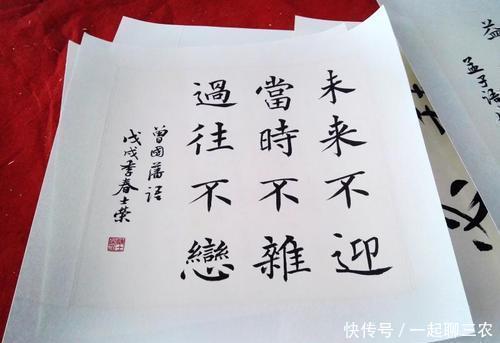 未来不迎
當時不雜
過往不戀
曾國藩語
戊戌季春士榮
孟子語
快传号／一起聊三农